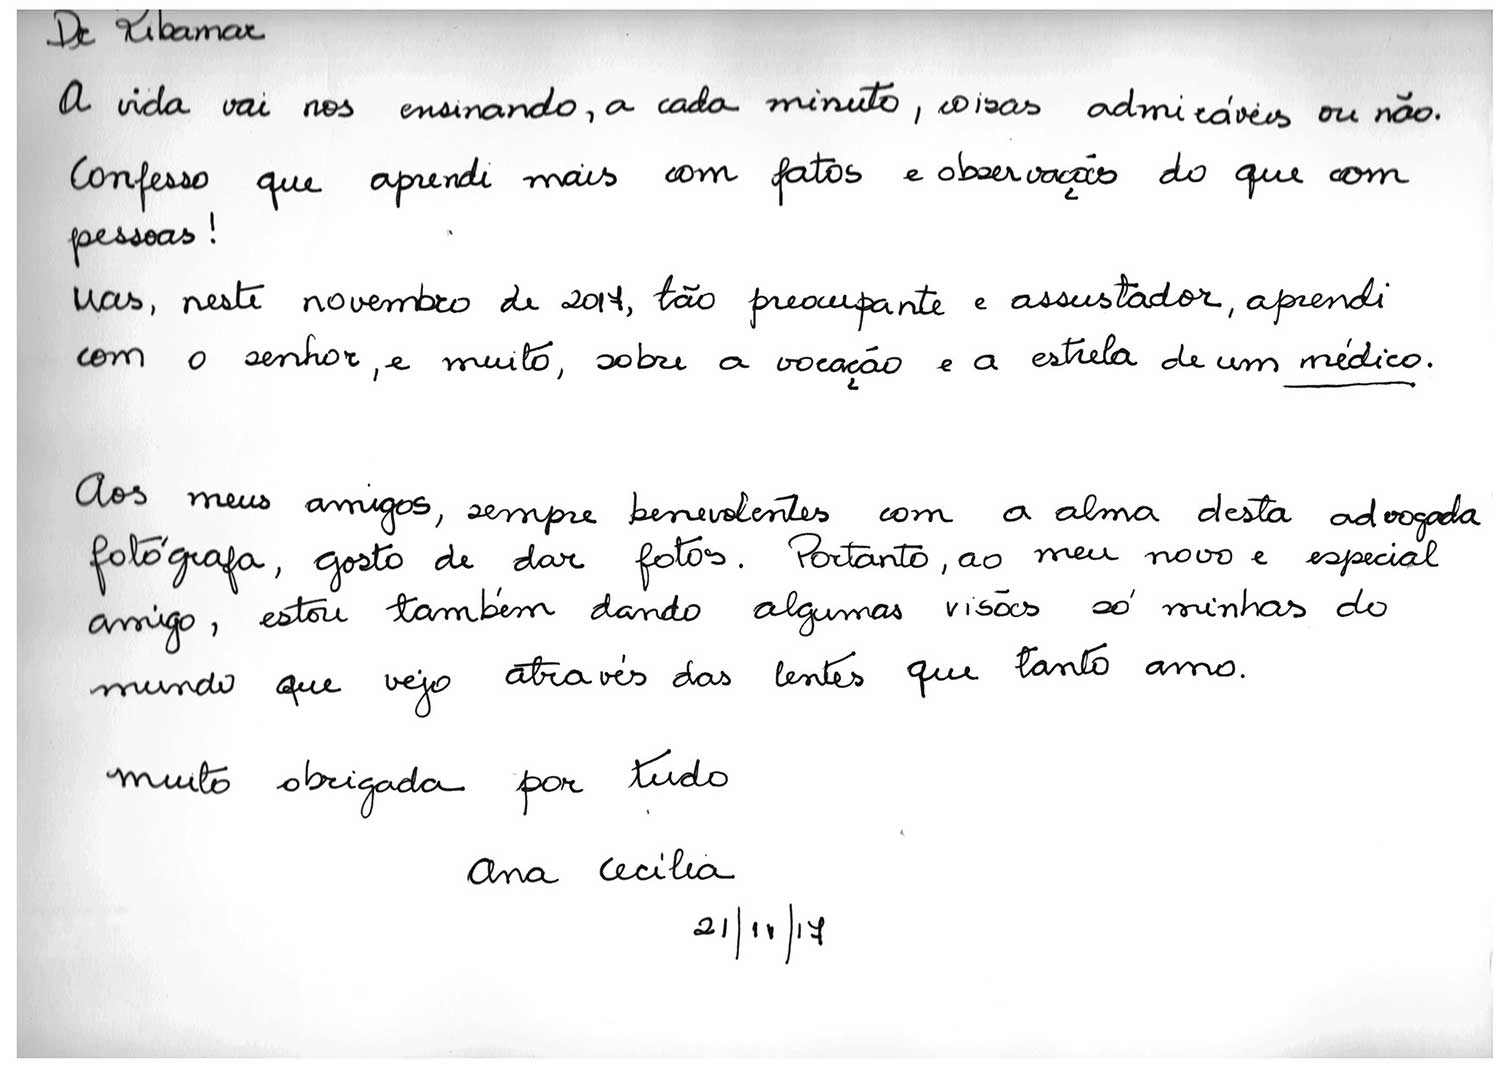 Dr Ribamar
A vida vai nos ensinando, a cada minuto, coisas admiráveis ou não.
Confesso que aprendi mais com fatos e observações do que com
pessoas!
Mas, neste novembro de 2017, tão preocupante e assustador, aprendi
com o senhor, e muito, sobre a vocação e a estrela de um médico.
Aos meus amigos, sempre benevolentes com a alma desta advogada
fotógrafa, gosto de dar fotos. Portanto, ao meu novo e especial
amigo, estou também dando algumas visões só minhas do
mundo que vejo através das lentes que tanto amo.
Muito obrigada por tudo
Ana Cecilia
21/11/17